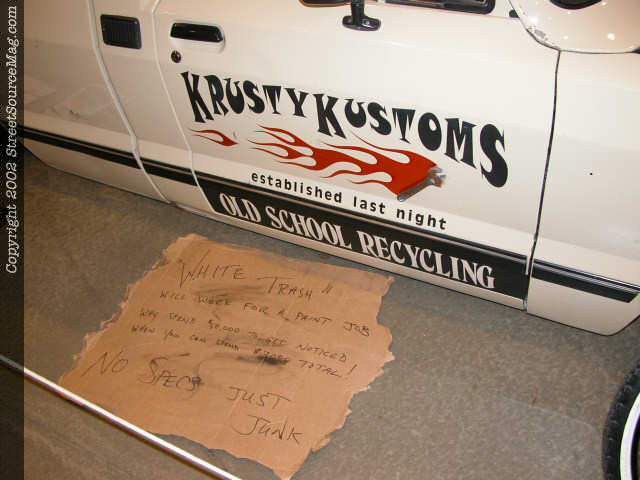 KRUSTY KUSTOMS
established last night
OLD SCHOOL RECYCLING
"WHITE TRASH"
WILL WORK FOR A PAINT JOB
WHY SPEND $50,000 TO GET NOTICED
WHEN YOU CAN SPEND TOTAL!
NO SPECS JUST
JUNK
Copyright 2002 StreetSourceMag.com